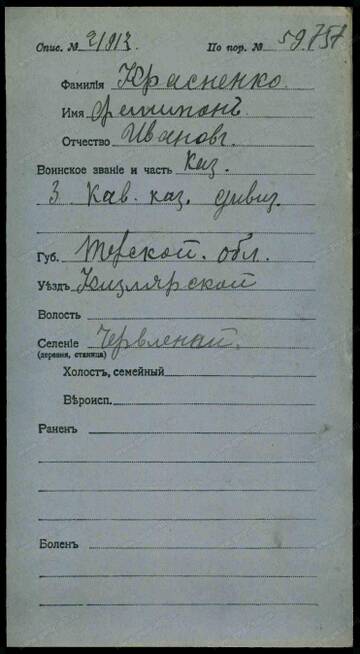 Спис. № 21913. По пор. № 59.757
Фамилія Красненко.
Имя
Отчество Иванов.
Воинское званіе и часть Каз.
3 Кав. каз. дивиз.
Губ. Терской. обл.
Уѣздъ Кизлярской
Волость
Селеніе Червленай.
(деревня, станица)
Холостъ, семейный
Вѣроисп.
Раненъ
Боленъ